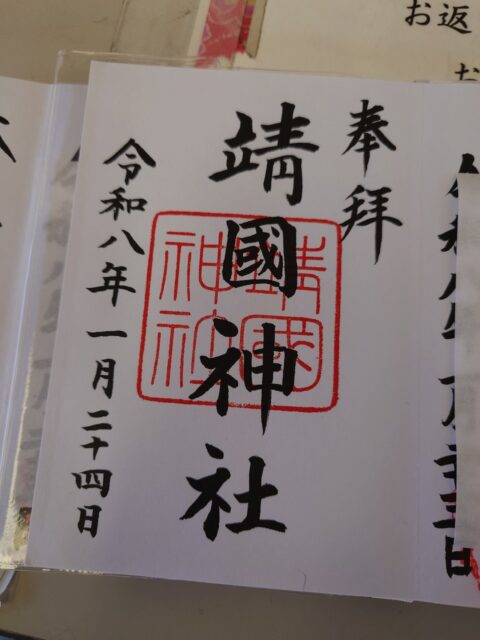 お返
お
奉拝
靖國神社
靖國神社
令和八年一月二十四日